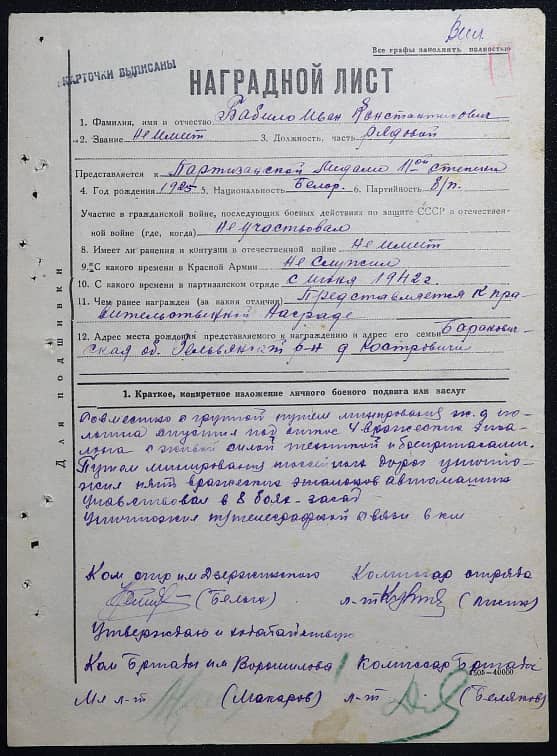 Все графы заполнять полностью
КАРТОЧКИ ВЫПИСАНЫ
НАГРАДНОЙ ЛИСТ
1. Фамилия, имя и отчество Бабило Иван Константинович
2. Звание не имеет 3. Должность, часть рядовой
Представляется к Партизанской Медали IIой степени
4. Год рождения 1925 5. Национальность Белор. 6. Партийность б/п.
Участие в гражданской войне, последующих боевых действиях по защите СССР и отечествен-
ной войне (где, когда) Не участвовал
8. Имеет ли ранения и контузии в отечественной войне Не имеет
9. С какого времени в Красной Армии Не служил
10. С какого времени в партизанском отряде с июня 1942 г.
11. Чем ранее награжден (за какия отличия) Представляется к пра-
вительственной Награде
12. Адрес места рождения представляемого к награждению и адрес его семьи Баранович
ская об. р-н д Костровичи
Для подшивки
1. Краткое, конкретное изложение личного боевого подвига или заслуг
Совместно с группой путем минирования ж.д по-
лотна спустил под откос 4 вражеских эша-
лона с живой силой техникой и боеприпасами.
Путем минирования дорог уничто-
жил пять вражеских автомашин
Участвовал в 8 боях-засад
Уничтожил телеграфной связи 6 км
Ком отр им Дзержинского Комиссар отряда
л-т
Утверждаю и ходатайствую
Ком Бригады им Ворошилова Комиссар Бригады
Мл л-т (Макаров) л-т (Беляков)